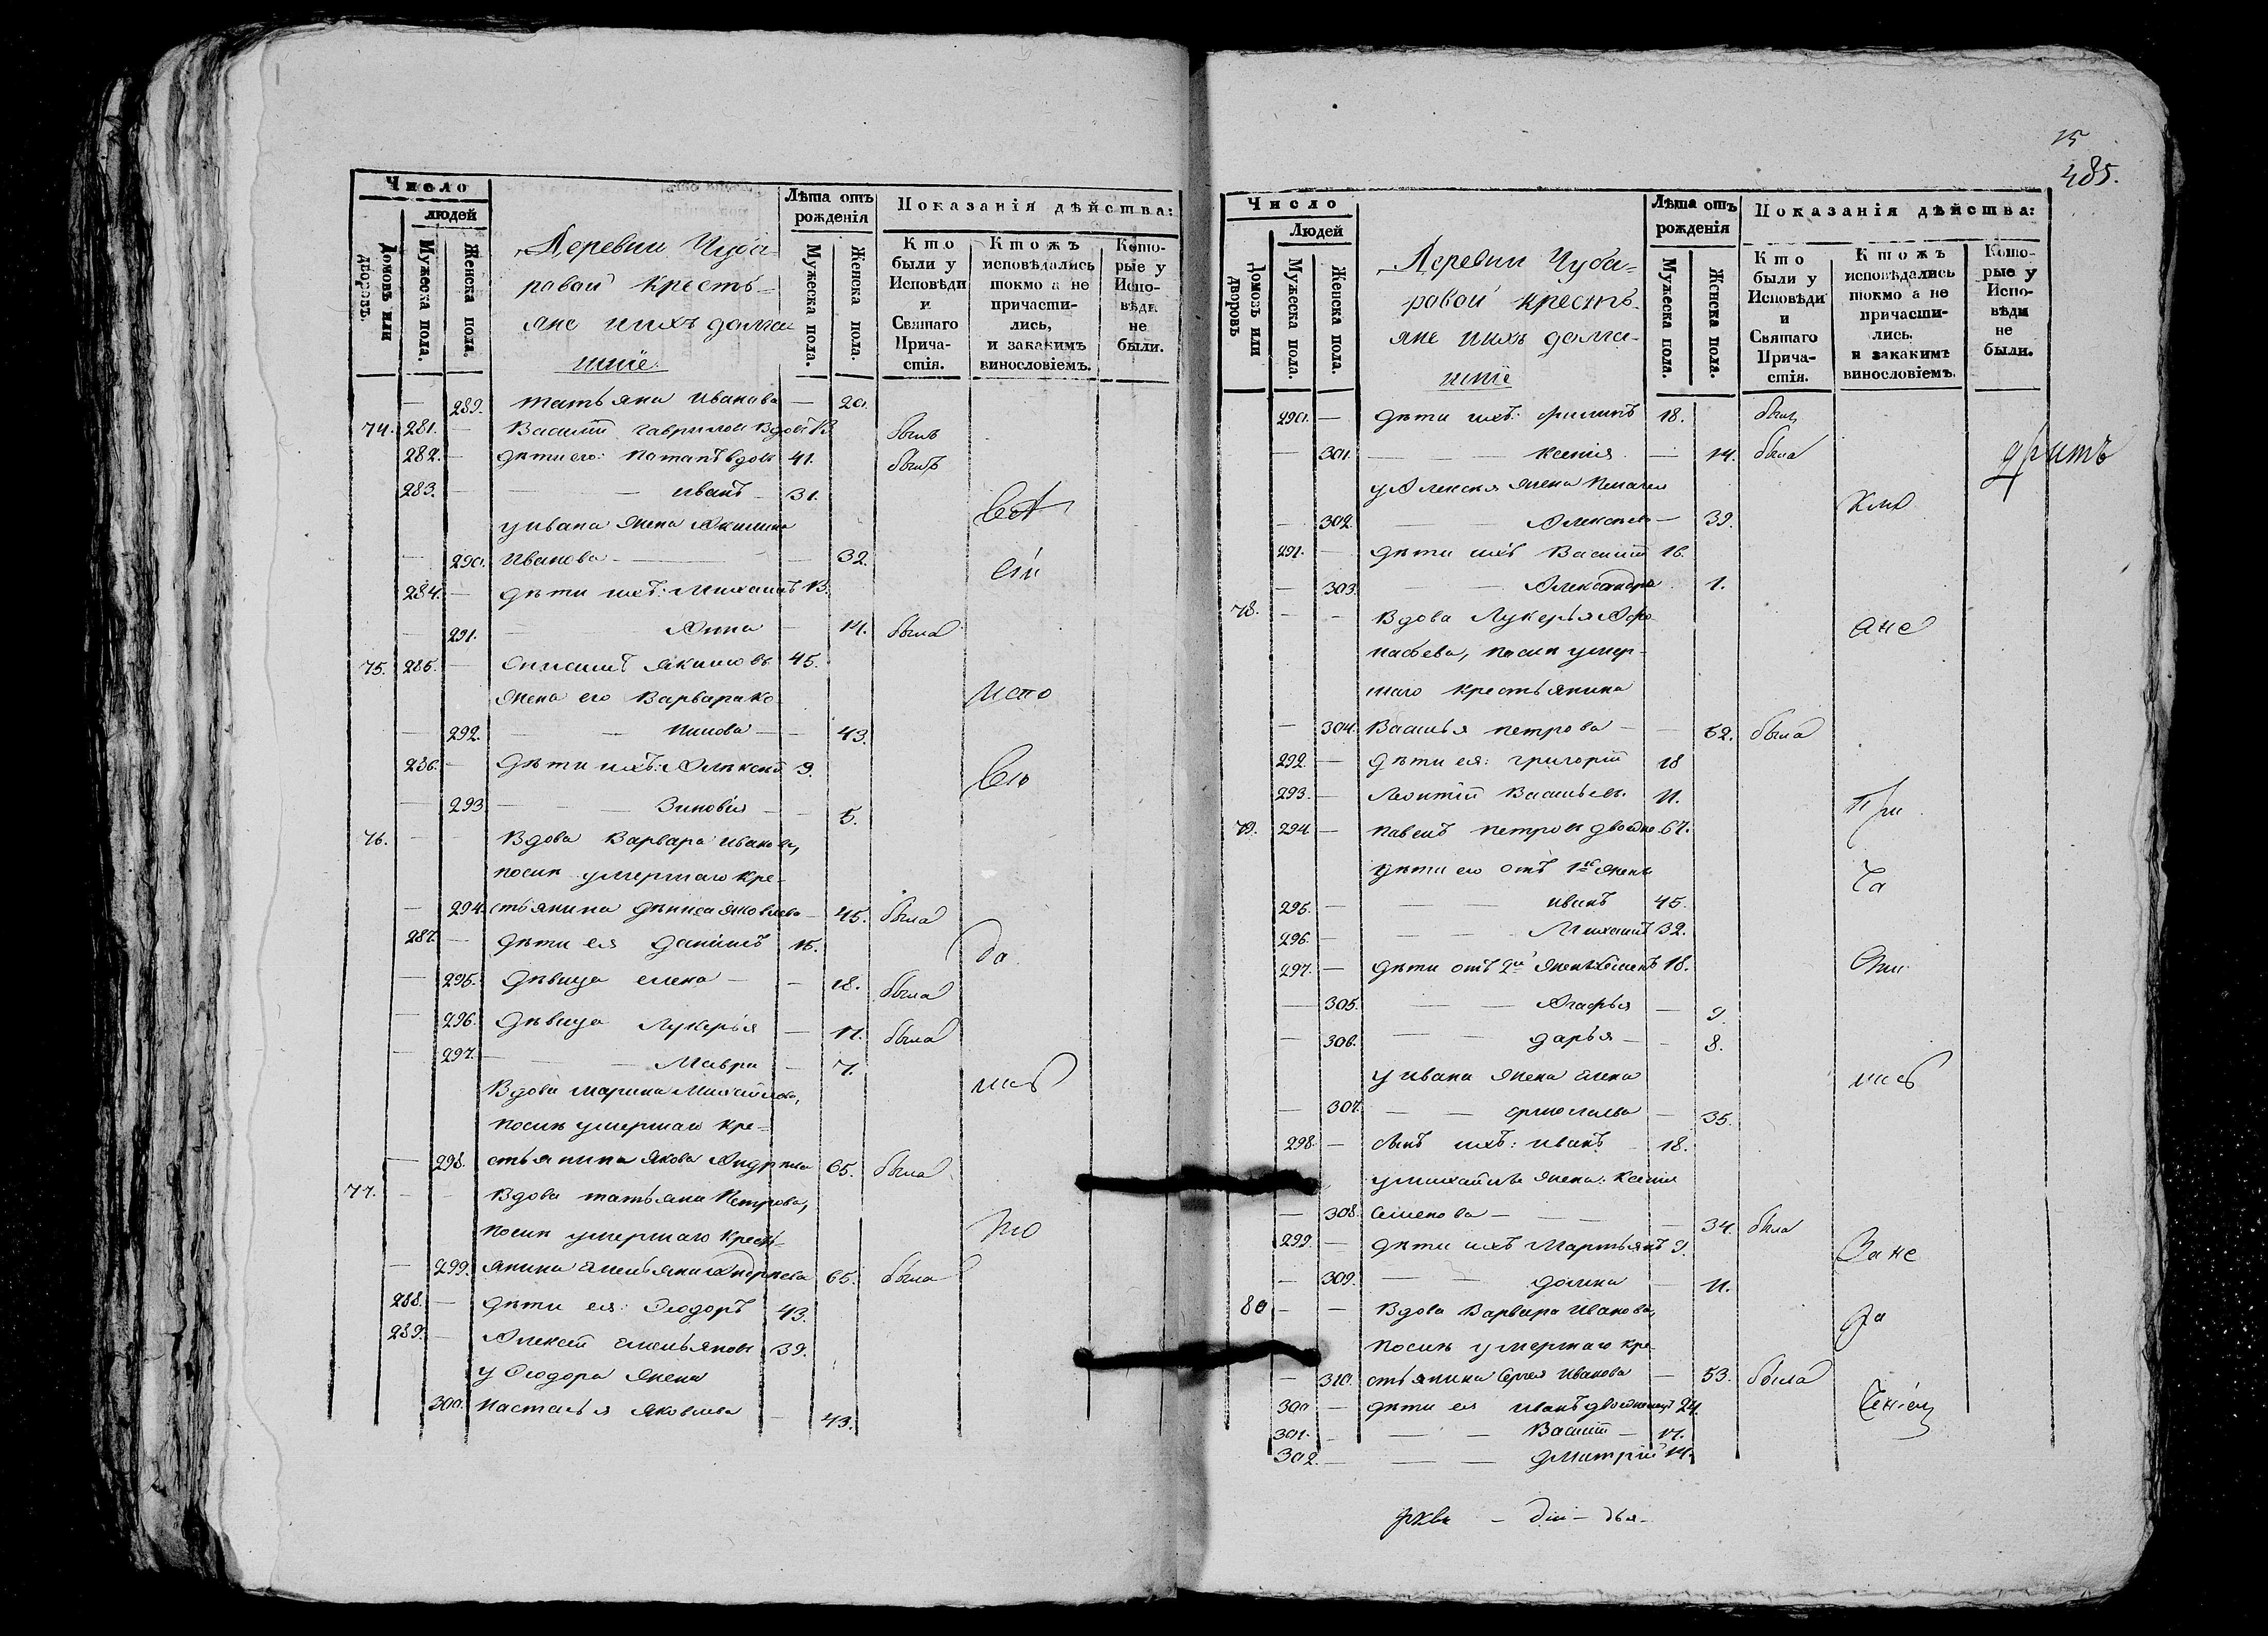 Число
людей
Домовъ или дворовъ.
Мужеска пола.
Женска пола.
Деревни Чуба-
ровой кресть-
яне и ихъ домаш
ніе
Лѣта отъ рожденія
Мужеска пола.
Женска пола.
Показанія дѣйства:
Кто были у Исповѣди и Святаго Причастія.
Ктожъ исповѣдались токмо а не причасти-лись, и закакимъ винословіемъ.
Кото-рые у Испо-вѣди не были.
— 289. татьяна иванова — 20.
74. 281. — Василій гавриловъ вдовъ былъ
282. — дѣти его: потапъ вдовъ 41. былъ
283. — — — иванъ — 31.
у ивана жена Акилина
— 290. Иванова — — 32.
284. — дѣти ихъ: Михаилъ 13.
— 291. — Анна — 14. была
75. 285. — якимовъ 45.
жена его Варвара ко
— 292. — — нонова — — 43.
286. — дѣти ихъ: Алексѣй 9.
— 293 — — — Зиновія — — 5.
76. — — Вдова Варвара иванова,
послѣ умершаго кре-
— 294. стьянина дениса яковлева — 45. была
287. — дѣти ея даніилъ 15.
— 295. дѣвица елена — — 18. была
— 296. дѣвица лукерья — 11. была
— 297. — — Мавра — 7.
Вдова марина Михайлова,
послѣ умершаго кре-
— 298. стьянина якова 65. была
77. — — Вдова татьяна Петрова,
послѣ умершаго кресть-
— 299. янина емельяна 65. была
288. — дѣти ея: Ѳеодоръ 43.
289. — Алексѣй емельяновъ 39.
у Ѳеодора жена
300. настасья яковлева — 43.
испо
да
лись
но
15
485.
Число
Людей
Домовъ или дворовъ
Мужеска пола.
Женска пола.
Деревни Чуба-
ровой кресть-
яне и ихъ дома-
шніе
Лѣта отъ рожденія
Мужеска пола.
Женска пола.
Показанія дѣйства:
Кто были у Исповѣди и Святаго Прича-стія.
Ктожъ исповѣдались токмо а не причасти-лись, и закакимъ винословіемъ.
Кото-рые у Испо-вѣди не были.
290. — дѣти ихъ: филипъ 18. былъ
— 301. — — ксенія — 14. была
у Алексѣя жена Пелагея
— 302. — Алексѣева — 39.
291. — дѣти ихъ Василій 16.
— 303. — — Александра 1.
78. — — Вдова Лукерья Афо
насьева, послѣ умер-
шаго крестьянина
— 304. Василья петрова — — 52. была
292. — дѣти ея: григорій 18
293. — Леонтій Васильевъ. 11.
79. 294 — павелъ петровъ 67.
дѣти его отъ 1й жены
295. — — — иванъ 45.
296. — — — Михаилъ 32.
297. — дѣти отъ 2й жены 18.
— 305. — — — Агафья — 9.
— 306. — — дарья — — 8.
у ивана жена елена
— 307. — — ермолаева — 35.
298. — сынъ ихъ: иванъ 18.
у михайла жена: ксенія
— 308. Семенова — — — 34. была
299. — дѣти ихъ Мартьянъ 9.
— 309. — — домна — 11.
80 — — Вдова Варвара иванова,
послѣ умершаго кре-
— 310. стьянина Сергѣя Иванова — 53. была
300 — дѣти ея иванъ 24.
301. — — — Василій — 17.
302. — — — дмитрій 14.
ане
При
ча
сти
лись
За не
ра